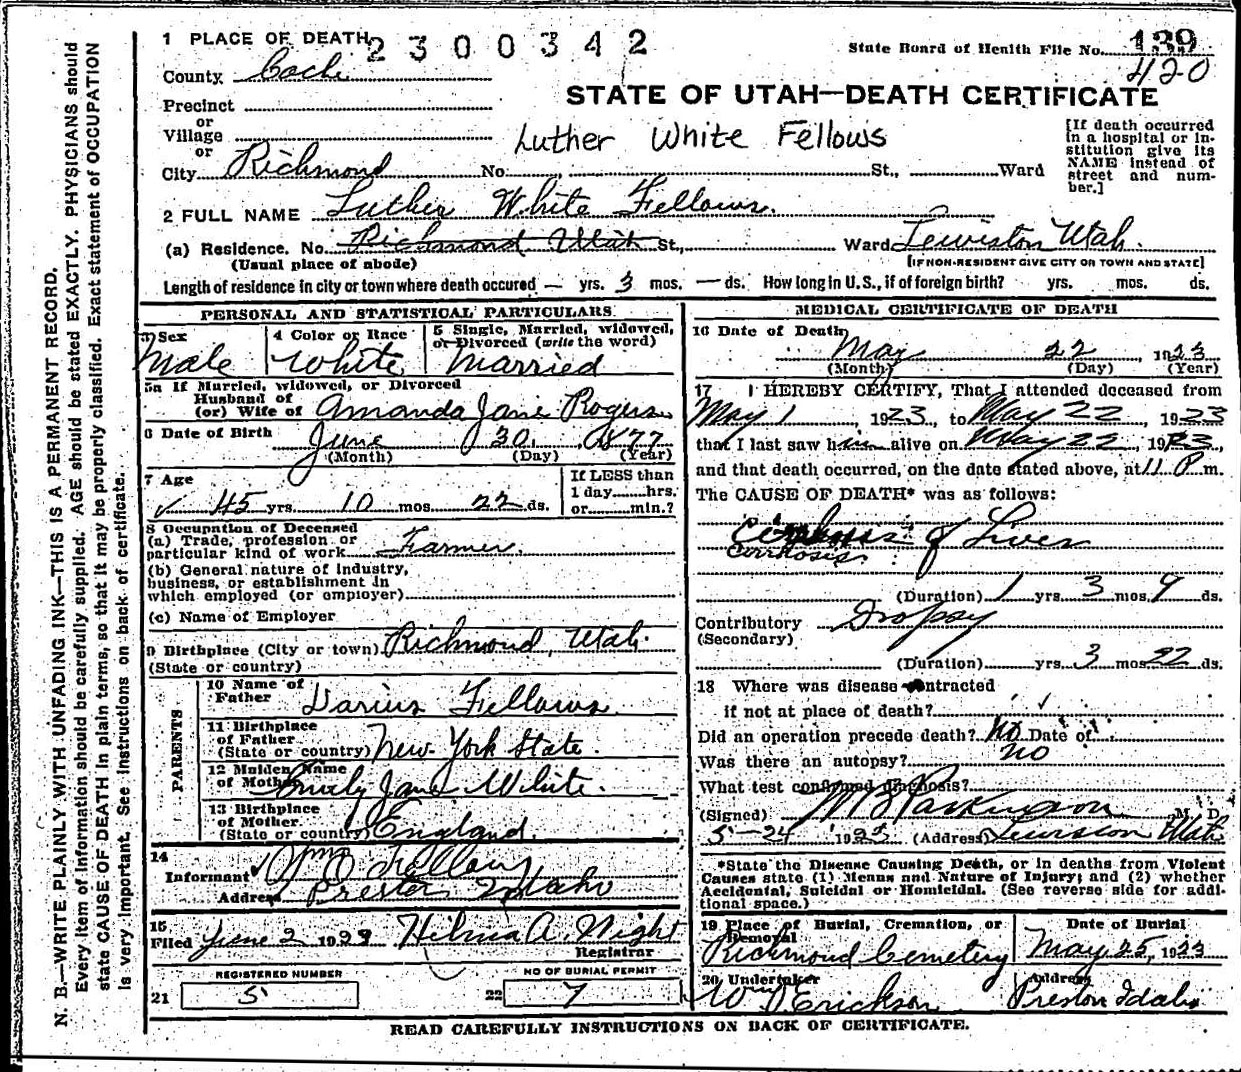 1 PLACE OF DEATH 2300342 State Board of Health File No. 139
County Cache 420
STATE OF UTAH—DEATH CERTIFICATE
Precinct
or
Village Luther White Fellows
or
City Richmond No. St., Ward
[If death occurred
in a hospital or in-
stitution give its
NAME instead of
street and num-
ber.]
2 FULL NAME Luther White Fellows.
(a) Residence. No. Richmond Utah St., Ward Lewiston Utah.
(Usual place of abode) [IF NON-RESIDENT GIVE CITY OR TOWN AND STATE]
Length of residence in city or town where death occured — yrs. 3 mos. — ds. How long in U.S., if of foreign birth? yrs. mos. ds.
PERSONAL AND STATISTICAL PARTICULARS
3 Sex 4 Color or Race 5 Single, Married, widowed,
or Divorced (write the word)
Male White Married
5a If Married, widowed, or Divorced
Husband of
(or) Wife of Amanda Jane Rogers
6 Date of Birth June 30, 1877
(Month) (Day) (Year)
7 Age If LESS than
1 day hrs.
45 yrs. 10 mos. 22 ds. or min.?
8 Occupation of Deceased
(a) Trade, profession or
particular kind of work Farmer.
(b) General nature of Industry,
business, or establishment in
which employed (or employer)
(c) Name of Employer
9 Birthplace (City or town) Richmond, Utah.
(State or country)
PARENTS
10 Name of
Father Darius Fellows.
11 Birthplace
of Father
(State or country) New York State.
12 Maiden Name
of Mother Emily Jane White.
13 Birthplace
of Mother
(State or country) England.
14
Informant Wm D Fellows
Address Preston Idaho
15
Filed June 2 1923 Hilma A. Wight
Registrar
REGISTERED NUMBER NO OF BURIAL PERMIT
21 5 22 7
MEDICAL CERTIFICATE OF DEATH
16 Date of Death
May 22, 1923
(Month) (Day) (Year)
17 I HEREBY CERTIFY, That I attended deceased from
May 1, 1923, to May 22, 1923
that I last saw him alive on May 22, 1923,
and that death occurred, on the date stated above, at 11 P m.
The CAUSE OF DEATH* was as follows:
Cirrhosis of Liver
Cirrhosis
(Duration) 1 yrs. 3 mos. 9 ds.
Contributory Dropsy
(Secondary)
(Duration) yrs. 3 mos. 22 ds.
18 Where was disease contracted
if not at place of death?
Did an operation precede death? No Date of
Was there an autopsy? no
What test confirmed diagnosis?
(Signed) W B Parkinson M. D.
5-24 1923 (Address) Lewiston Utah
*State the Disease Causing Death, or in deaths from Violent
Causes state (1) Means and Nature of Injury; and (2) whether
Accidental, Suicidal or Homicidal. (See reverse side for addi-
tional space.)
19 Place of Burial, Cremation, or Date of Burial
Removal
Richmond Cemetery May 25, 1923
20 Undertaker Address
Wm D. Erickson Preston Idaho
READ CAREFULLY INSTRUCTIONS ON BACK OF CERTIFICATE.
N. B.—WRITE PLAINLY WITH UNFADING INK—THIS IS A PERMANENT RECORD.
Every item of information should be carefully supplied. AGE should be stated EXACTLY. PHYSICIANS should
state CAUSE OF DEATH in plain terms, so that it may be properly classified. Exact statement of OCCUPATION
is very important. See instructions on back of certificate.